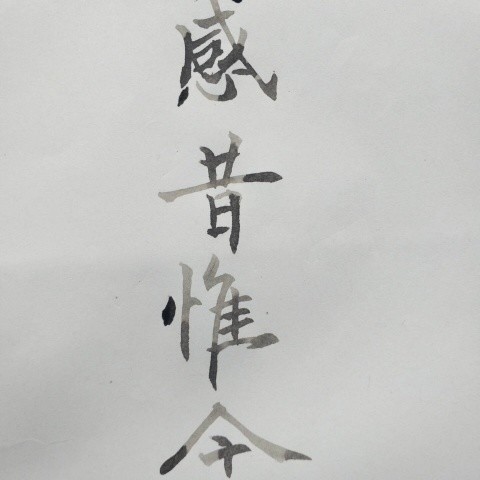 感昔惟今